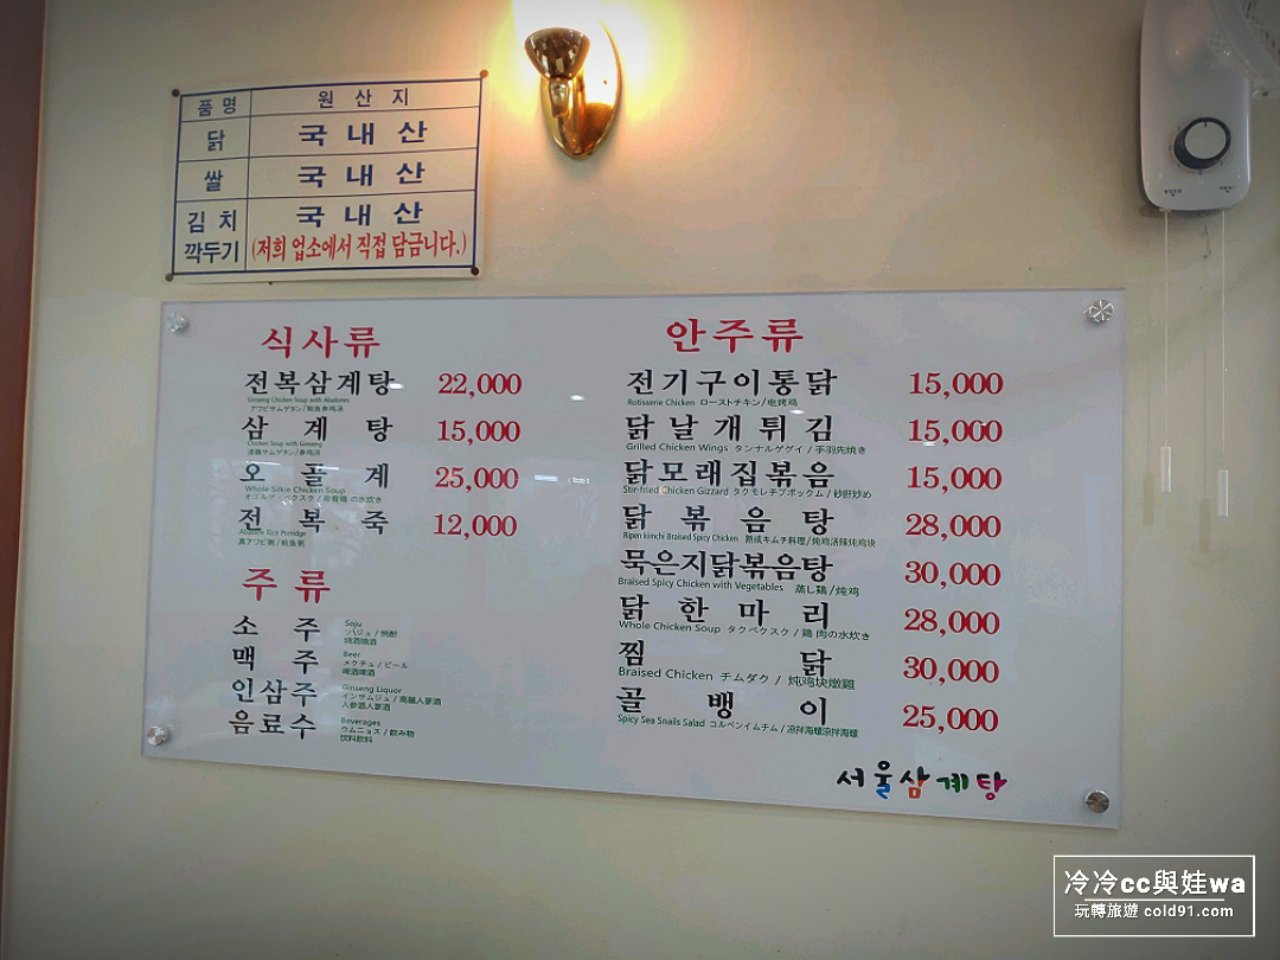 품명 원산지
닭 국내산
쌀 국내산
김치 국내산
깍두기 (저희 업소에서 직접 담금니다.)
식사류
전복삼계탕 22,000
Ginseng Chicken Soup with Abalones
アワビサムゲタン/鮑魚参鸡汤
삼계탕 15,000
Chicken Soup with Ginseng
오골계 25,000
Whole Silkie Chicken Soup
전복죽 12,000
Abalone Rice Porridge
真アワビ粥/鮑魚粥
주류
소주 Soju
焼酒烧酒
맥주 Beer
メクチュ/ビール
啤酒啤酒
인삼주 Ginseng Liquor
インサムジュ/高麗人参酒
人参酒人蔘酒
음료수 Beverages
ウムニョス/飲み物
饮料飲料
안주류
전기구이통닭 15,000
Rotisserie Chicken ローストチキン/电烤鸡
닭날개튀김 15,000
Grilled Chicken Wings タンナルゲゲイ/手羽先焼き
닭모래집볶음 15,000
Stir-fried Chicken Gizzard タクモレチプポックム/砂肝炒め
닭볶음탕 28,000
Ripen kimchi Braised Spicy Chicken 熟成キムチ料理/炖鸡汤辣炖鸡块
묵은지닭볶음탕 30,000
Braised Spicy Chicken with Vegetables 蒸し鶏/炖鸡
닭한마리 28,000
Whole Chicken Soup タクペクスク/鶏肉の水炊き
찜닭 30,000
Braised Chicken チムダク/炖鸡块燉雞
골뱅이 25,000
Spicy Sea Snails Salad コルベンイムチム/凉拌海螺凉拌海螺
서울삼계탕
冷冷cc與娃wa
玩轉旅遊 cold91.com